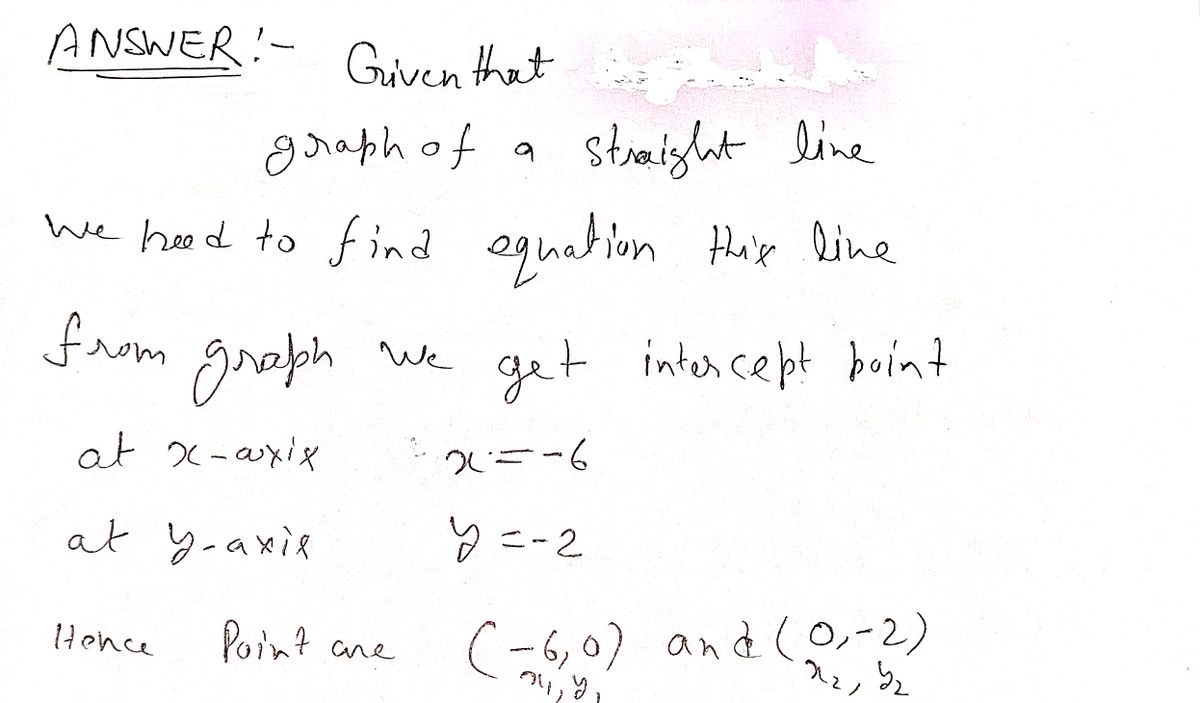 ANSWER :- Given that
graph of a straight line
We need to find equation this line
from graph we get intercept point
at x-axis x = -6
at y-axis y = -2
Hence Point are (-6,0) and (0,-2)
x₁, y₁ x₂, y₂